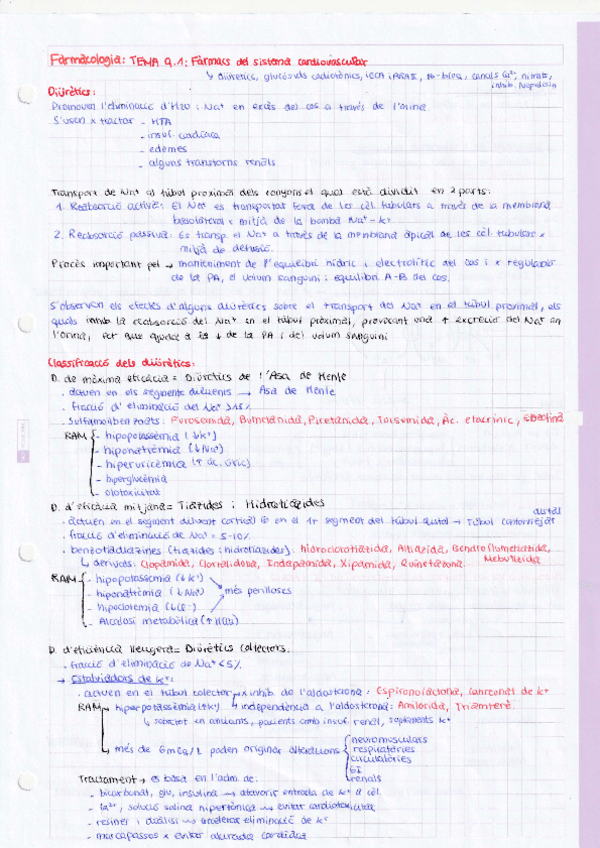 Farmacologia: TEMA 9.1: Fàrmacs del sistema cardiovascular
↳ diürètics, glucòsids cardiotònics, IECA i ARA II, β-bloq, canals Ca²⁺, nitrats,
inhib. Neprilisin
Diürètics:
Promouen l'eliminació d'H2O i Na⁺ en excés del cos a través de l'orina
S'usen x tractar - HTA
- insuf. cardíaca
- edemes
- alguns transtorns renals
Transport de Na⁺ al túbul proximal dels ronyons el qual està dividit en 2 parts:
1. Reabsorció activa: El Na⁺ es transportat fora de les cèl. tubulars a través de la membrana
basolateral x mitjà de la bomba Na⁺-K⁺
2. Reabsorció passiva: Es transp. el Na⁺ a través de la membrana apical de les cèl. tubulars x
mitjà de difusió.
Procés important pel → manteniment de l'equilibri hídric i electrolític del cos i x regulació
de la PA, el volum sanguini i equilibri A-B del cos.
S'observen els efectes d'alguns diürètics sobre el transport del Na⁺ en el túbul proximal, els
quals inhib la reabsorció del Na⁺ en el túbul proximal, provocant una ↑ excreció del Na⁺ en
l'orina, fet que ajuda a la ↓ de la PA i del volum sanguini
Classificació dels diürètics:
D. de màxima eficàcia = Diürètics de l'Asa de Henle
· actuen en els segments diluents → Asa de Henle
· fracció d'eliminació del Na⁺ >15%
· Sulfamoilbenzoats: Furosemida, Bumetanida, Piretanida, Torsemida, Àc. etacrínic,
RAM - hipopotassèmia (↓K⁺)
- hiponatrèmia (↓Na⁺)
- hiperuricèmia (↑ àc. úric)
- hiperglucèmia
- ototoxicitat
D. d'eficàcia mitjana = Tiazides i Hidrotiazides
distal
· actuen en el segment diluent cortical en el 1r segment del túbul distal → Túbul contornejat
· fracció d'eliminació de Na⁺ = 5-10%
· benzotiadiazines (tiazides i hidrotiazides): hidroclorotiazida, Altiazida, Bendroflumetiazida,
↳ derivats: Clopamida, Clortalidona, Indapamida, Xipamida, Quinetazona. Mebutizida
RAM - hipopotassèmia (↓K⁺)
- hiponatrèmia (↓Na⁺) → més perilloses
- hipocloremia (↓Cl⁻)
- Alcalosi metabòlica
D. d'eficiència lleugera = Diürètics collectors.
· fracció d'eliminació de Na⁺ <5%
→ Estalviadors de K⁺:
· actuen en el túbul colector → x inhib. de l'aldosterona: Espironolactona, Canrenoat de K⁺
↳ independència a l'aldosterona: Amilorida, Triamterè
RAM → hiperpotassèmia (↑K⁺)
↳ sobretot en ancians, pacients amb insuf. renal, suplements K⁺
↳ més de 6 mEq/L poden originar alteracions
neuromusculars
respiratòries
circulatòries
GI
renals
Tractament → es basa en l'adm. de:
- bicarbonat, glu, insulina → afavorir entrada de K⁺ a cèl.
- Ca²⁺, solució salina hipertònica → evitar cardiotoxicitat
- resines i diàlisi → accelerar eliminació de K⁺
- marcapassos x evitar aturada cardíaca